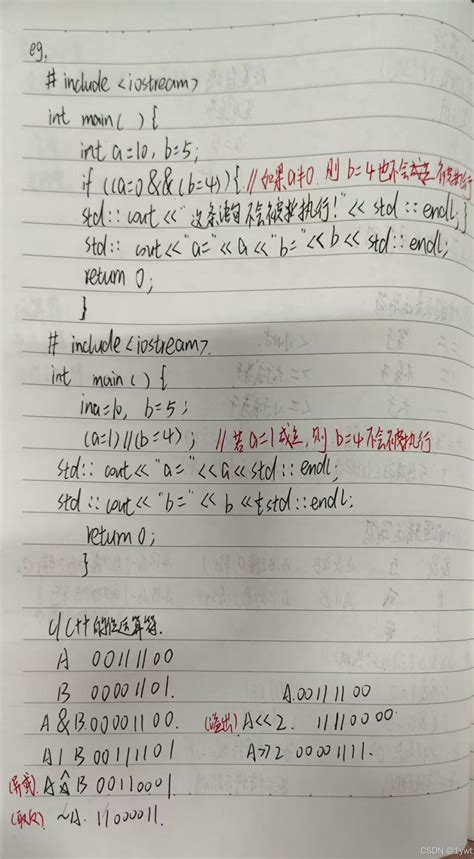 eg.
# include <iostream>
int main( ) {
int a=10, b=5;
if ((a=0 && (b=4)) { // 如果a≠0. 则 b=4也不会被执行
std:: cout <<"这条语句不会被执行!" << std:: endl; }
std:: cout << "a=" << a << "b=" << b << std:: endl;
return 0;
}
# include <iostream>.
int main( ) {
ina=10, b=5;
(a=1) // (b=4) ; // 若a=1成立,则 b=4不会被执行
std:: cout << "a=" << a << std:: endl;
std :: cout << "b=" << b << std:: endl;
return 0;
}
4) C++的位运算符.
A 00111100
B 00001101.
A & B. 00001100.
A | B 00111101
(异或). A ^ B 00110001.
(取反) ~A. 11000011.
A. 00111100
(溢出) A<<2. 11110000
A>>2 00001111.
CSDN @1ywt